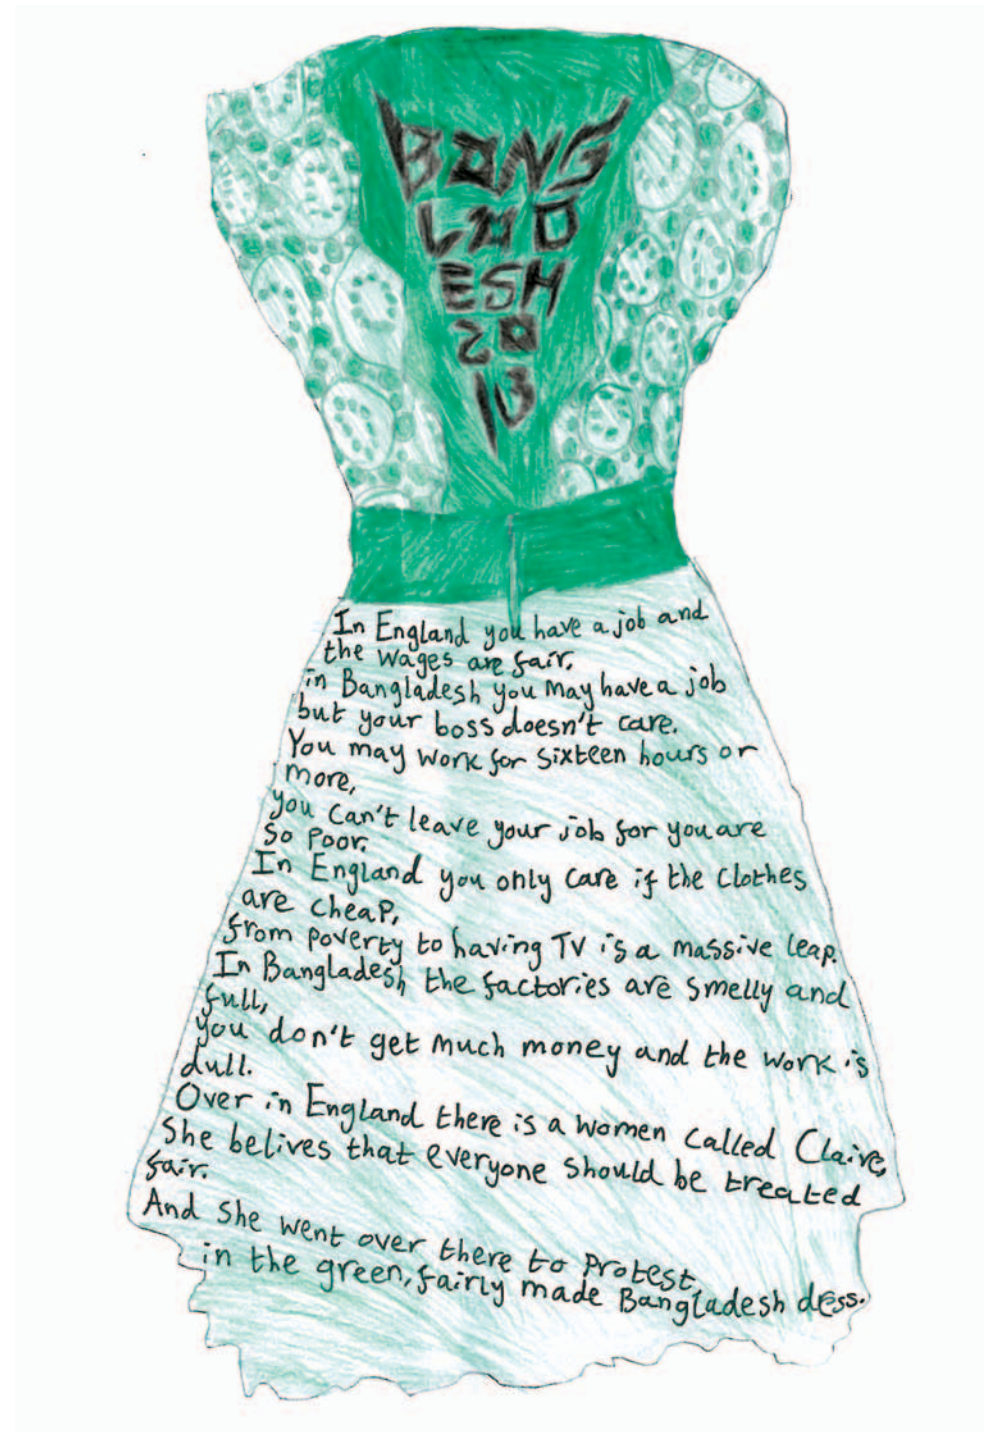 BANG
LAD
ESH
20
13
In England you have a job and
the wages are fair.
in Bangladesh you may have a job
but your boss doesn't care.
You may work for sixteen hours or
more,
you can't leave your job for you are
so poor.
In England you only care if the clothes
are cheap,
from poverty to having TV is a massive leap.
In Bangladesh the factories are smelly and
full,
you don't get much money and the work is
dull.
Over in England there is a women called Claire,
She belives that everyone should be treated
fair.
And she went over there to protest,
in the green, fairly made Bangladesh dess.